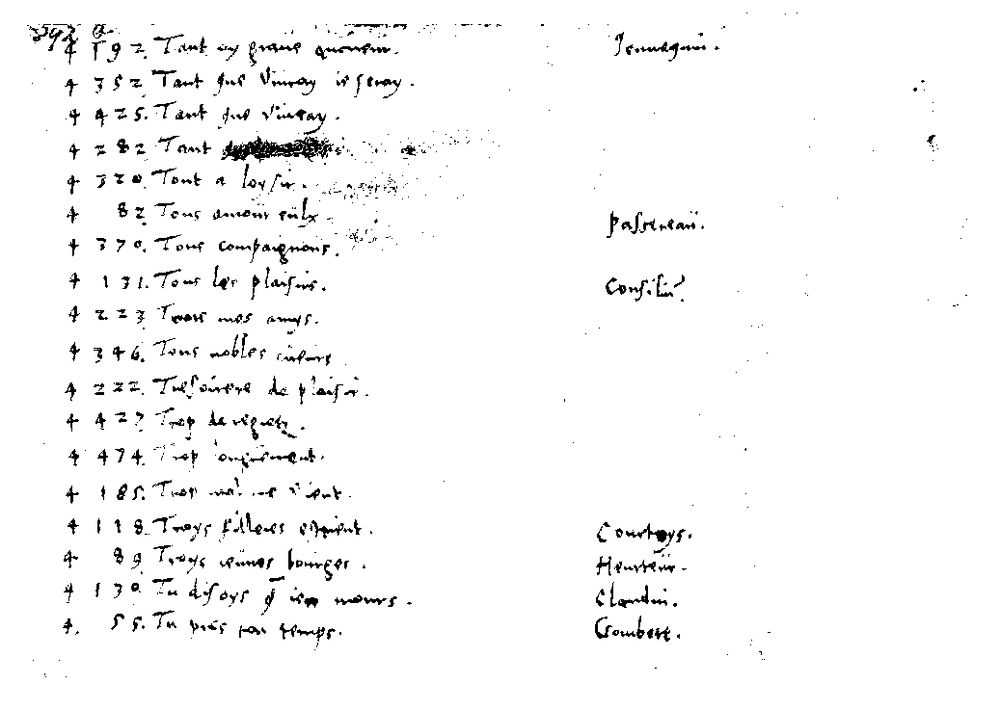 4 192. Tant ay gravé Jennequin.
4 352. Tant que vivray ie seray.
4 425. Tant que vivray.
4 282 Tant
4 320. Tout a loysir.
4 82. Tous amoureulx Passereau.
4 370. Tous compaignons.
4 131. Tous les plaisirs. Consiliu
4 223 Tous mes amys.
4 346. Tous nobles cueurs
4 222. Tresoriere de plaisir.
4 427 Trop de regretz.
4 474. Trop longuement.
4 185. Trop
4 118. Troys filleres estoient. Courtoys.
4 89 Troys ieunes bourges. Heurteur.
4 130. Tu disoys q̃ ien mours. Claudin.
4. 55. Tu pers ton temps. Gombert.